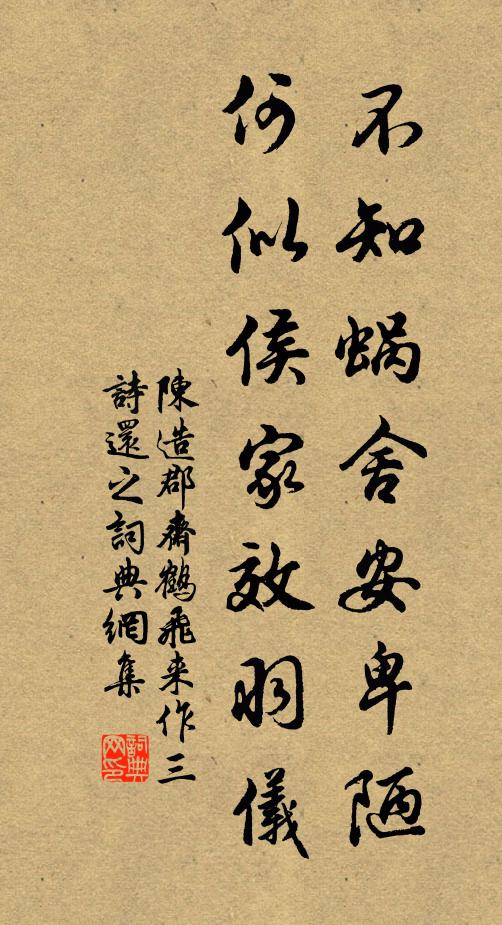 不知蝸舍安卑陋
何似侯家效羽儀
陳造郡齋鶴飛来作三
詩還之詞典網集
詞典网印